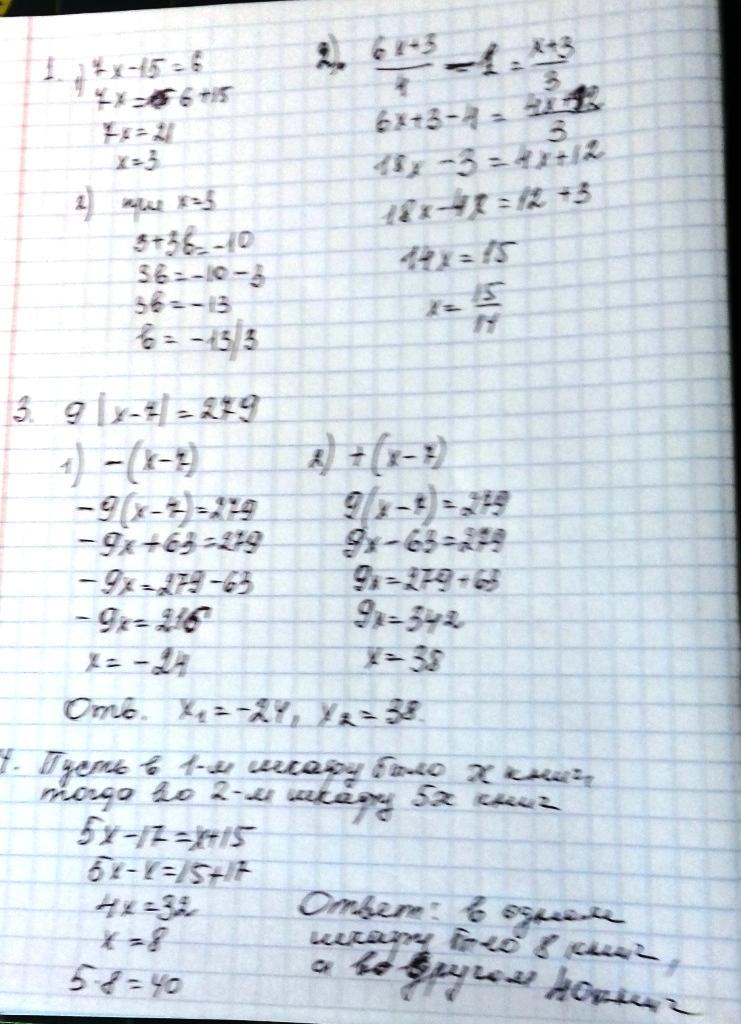 1. 1) 7x-15=6
7x=6+15
7x=21
x=3
2) при x=3
3+3b=-10
3b=-10-3
3b=-13
b=-13/3
2). (6x+3)/4 -1 = (x+3)/3
6x+3-4= (4x+12)/3
18x-3=4x+12
18x-4x=12+3
14x=15
x= 15/14
3. 9|x-7|=279
1) -(x-7)
-9(x-7)=279
-9x+63=279
-9x=279-63
-9x=216
x=-24
2) +(x-7)
9(x-7)=279
9x-63=279
9x=279+63
9x=342
x=38
Отв. x₁=-24, x₂=38.
4. Пусть в 1-м шкафу было x книг,
тогда во 2-м шкафу 5x книг
5x-17=x+15
5x-x=15+17
4x=32
x=8
5·8=40
Ответ: в одном
шкафу было 8 книг,
а во другом 40 книг